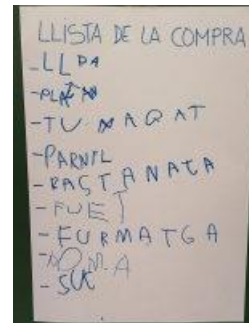 LLISTA DE LA COMPRA
- LL DA
- PLATAN
- TUMAQAT
- PARNIL
- PASTANAGA
- FUET
- FURMATGA
- POMA
- SUC